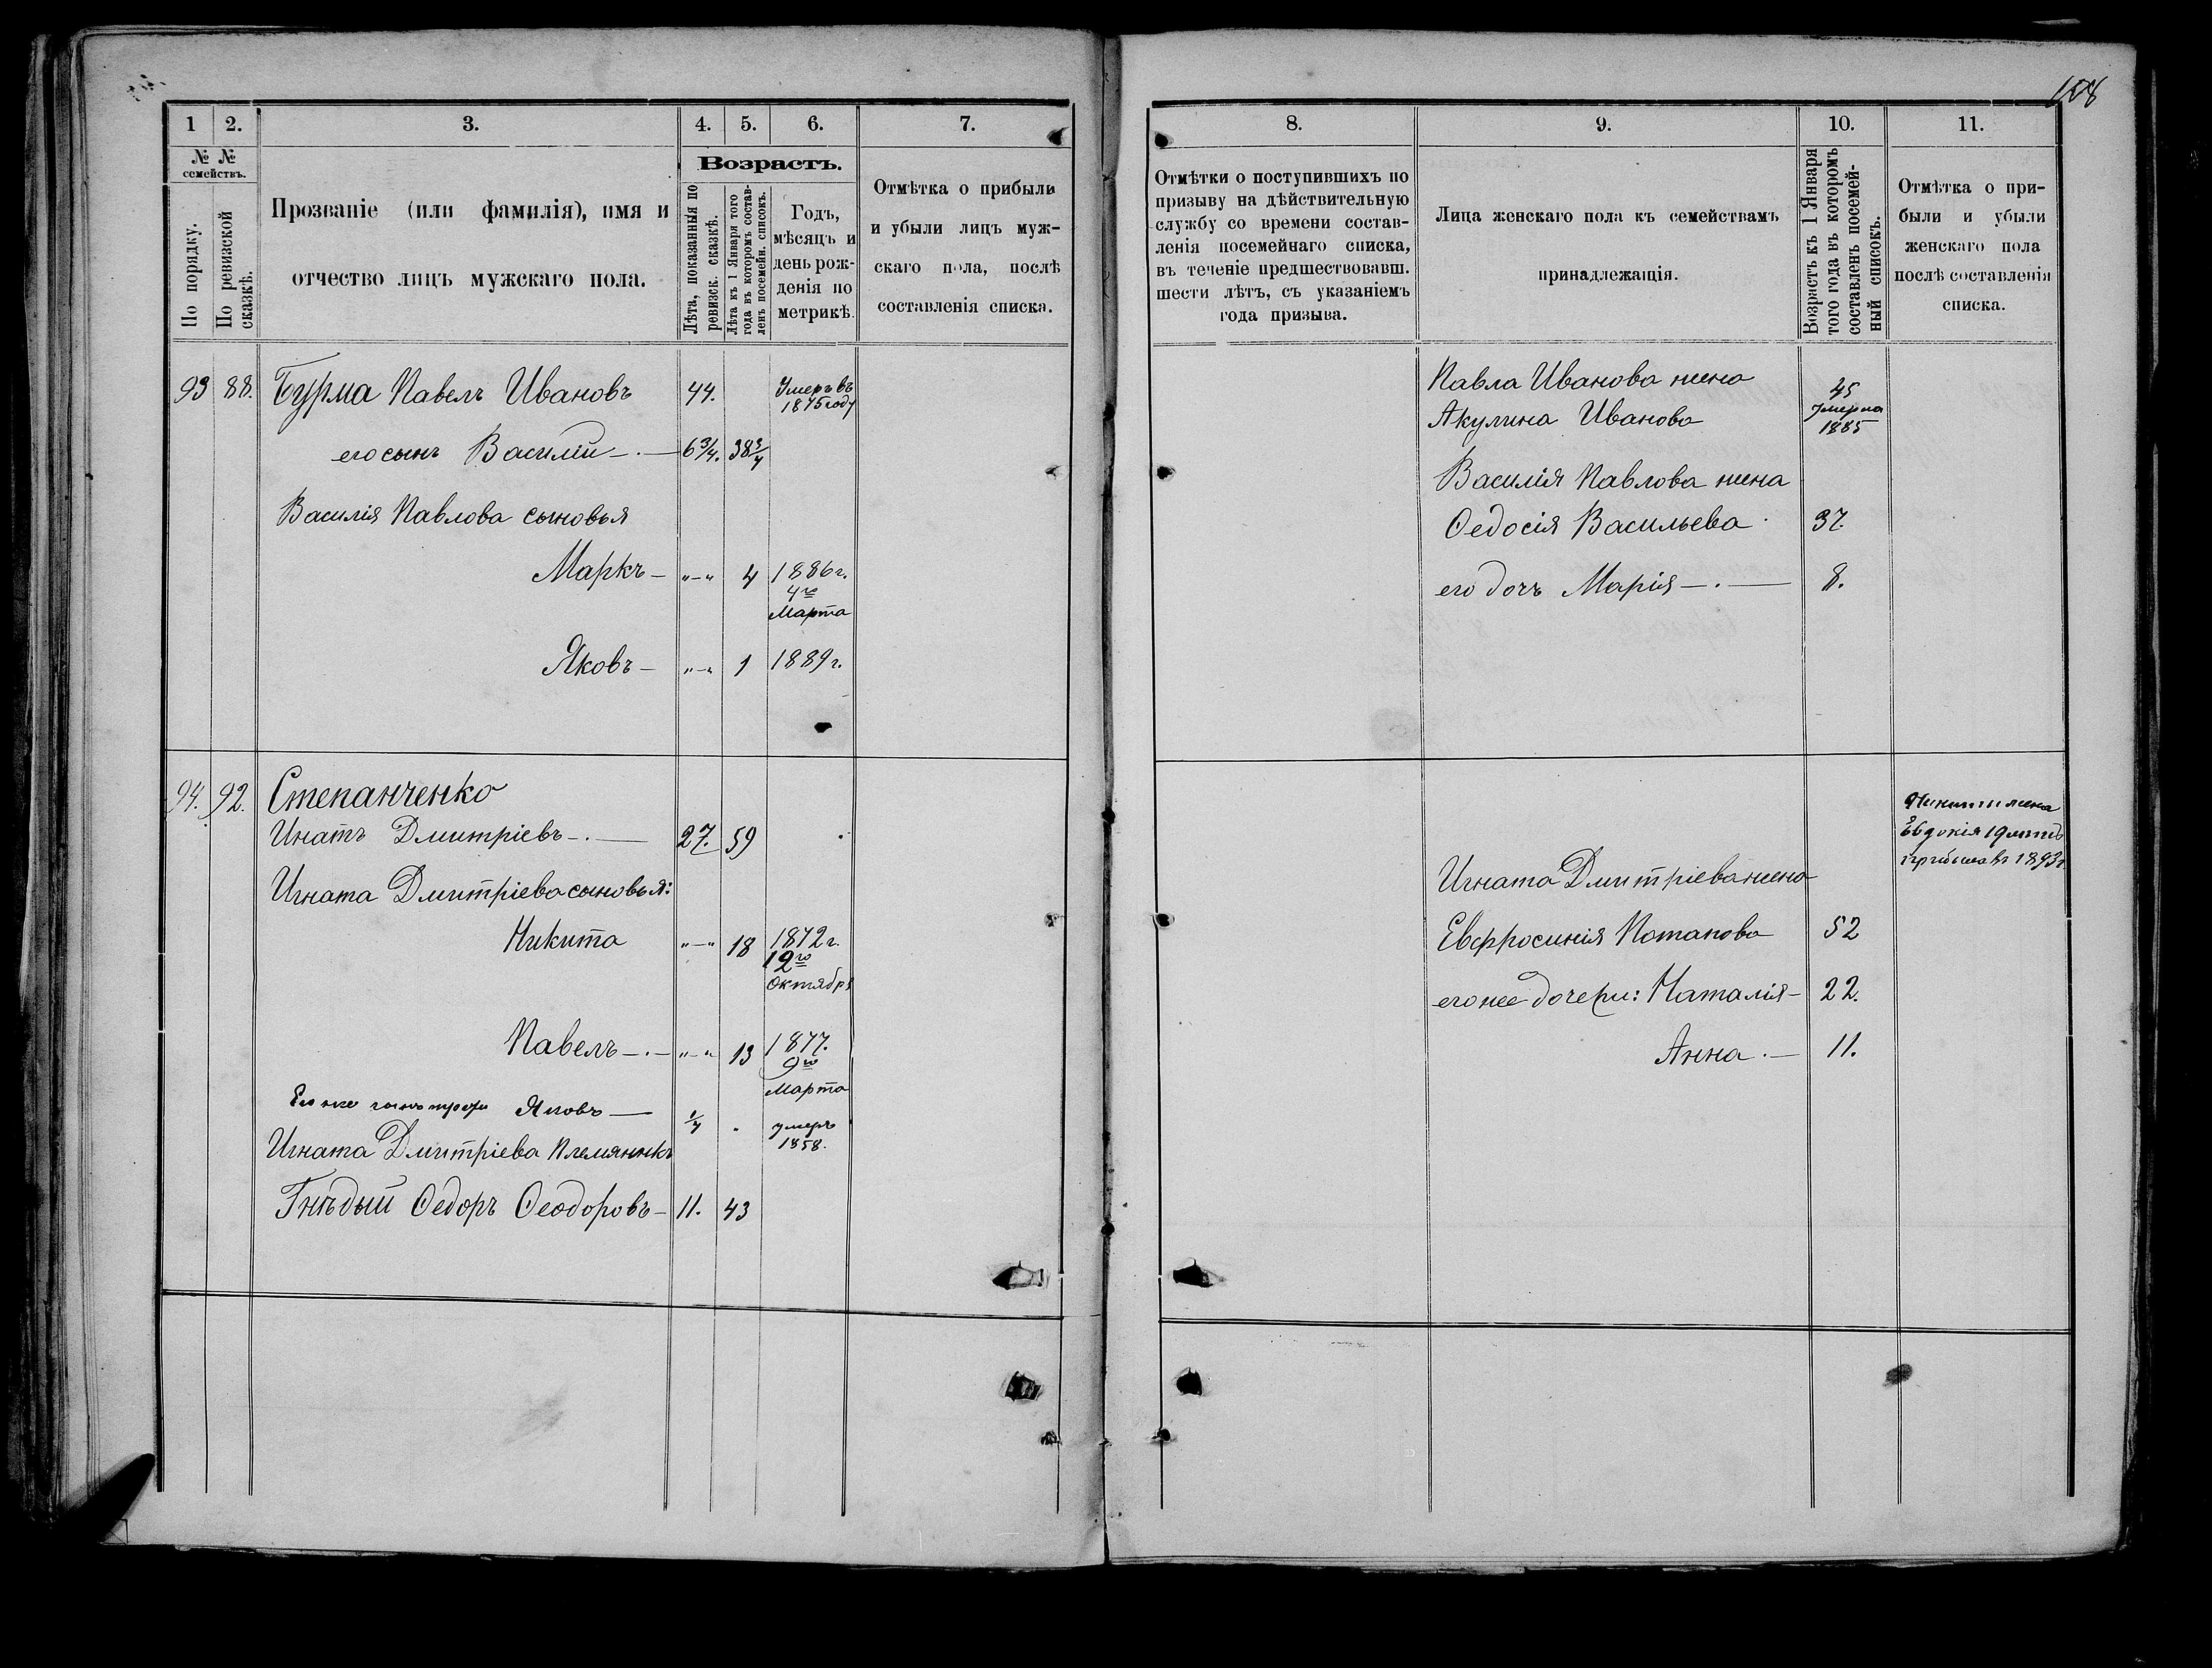 108
1
2.
3.
4.
5.
6.
7.
№ №
семействъ.
По порядку.
По ревизской сказкѣ.
Прозваніе (или фамилія), имя и
отчество лицъ мужскаго пола.
Возрастъ.
Лѣта, показанныя по ревизск. сказкѣ.
Лѣта къ 1 Января того года въ которомъ составленъ посемейн. списокъ.
Годъ,
мѣсяцъ и
день рож-
денія по
метрикѣ.
Отмѣтка о прибыли
и убыли лицъ муж-
скаго пола, послѣ
составленія списка.
93 88. Бурма Павелъ Ивановъ 44. Умеръ въ
1875 году
его сынъ Василій 6 3/4. 38 3/4
Василія Павлова сыновья
Маркъ „—„ 4 1886 г.
4го
Марта
Яковъ „—„ 1 1889 г.
94. 92. Степанченко
Инатъ Дмитріевъ 27. 59
Игната Дмитріева сыновья:
Никита „—„ 18 1872 г.
12го
Октября
Павелъ „—„ 13 1877.
9го
Марта
Его же сынъ Яковъ 1/4 умеръ
1858.
Игната Дмитріева Племянникъ
Гнѣдый Ѳедоръ Ѳеодоровъ 11. 43
8.
9.
10.
11.
Отмѣтки о поступившихъ по
призыву на дѣйствительную
службу со времени состав-
ленія посемейнаго списка,
въ теченіе предшествовавш.
шести лѣтъ, съ указаніемъ
года призыва.
Лица женскаго пола къ семействамъ
принадлежащія.
Возрастъ къ 1 Января
того года въ которомъ
составленъ посемей-
ный списокъ.
Отмѣтка о при-
были и убыли
женскаго пола
послѣ составленія
списка.
Павла Иванова жена
Акулина Иванова 45
умерла
1885
Василія Павлова жена
Ѳедосія Васильева 37.
его дочь Марія 8.
Никиты жена
Евдокія 19 лѣтъ
прибыла въ 1893 г
Игната Дмитріева жена
Евфросинія Потапова 52
его же дочери: Наталія 22.
Анна 11.